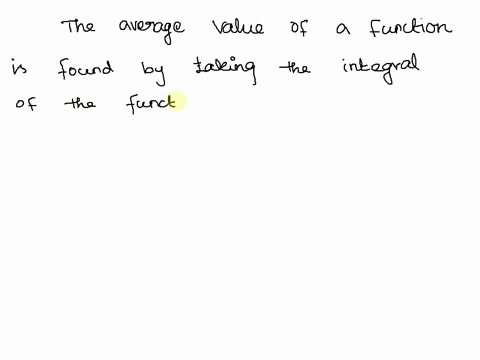 The average value of a function
is found by taking the integral
of the funct